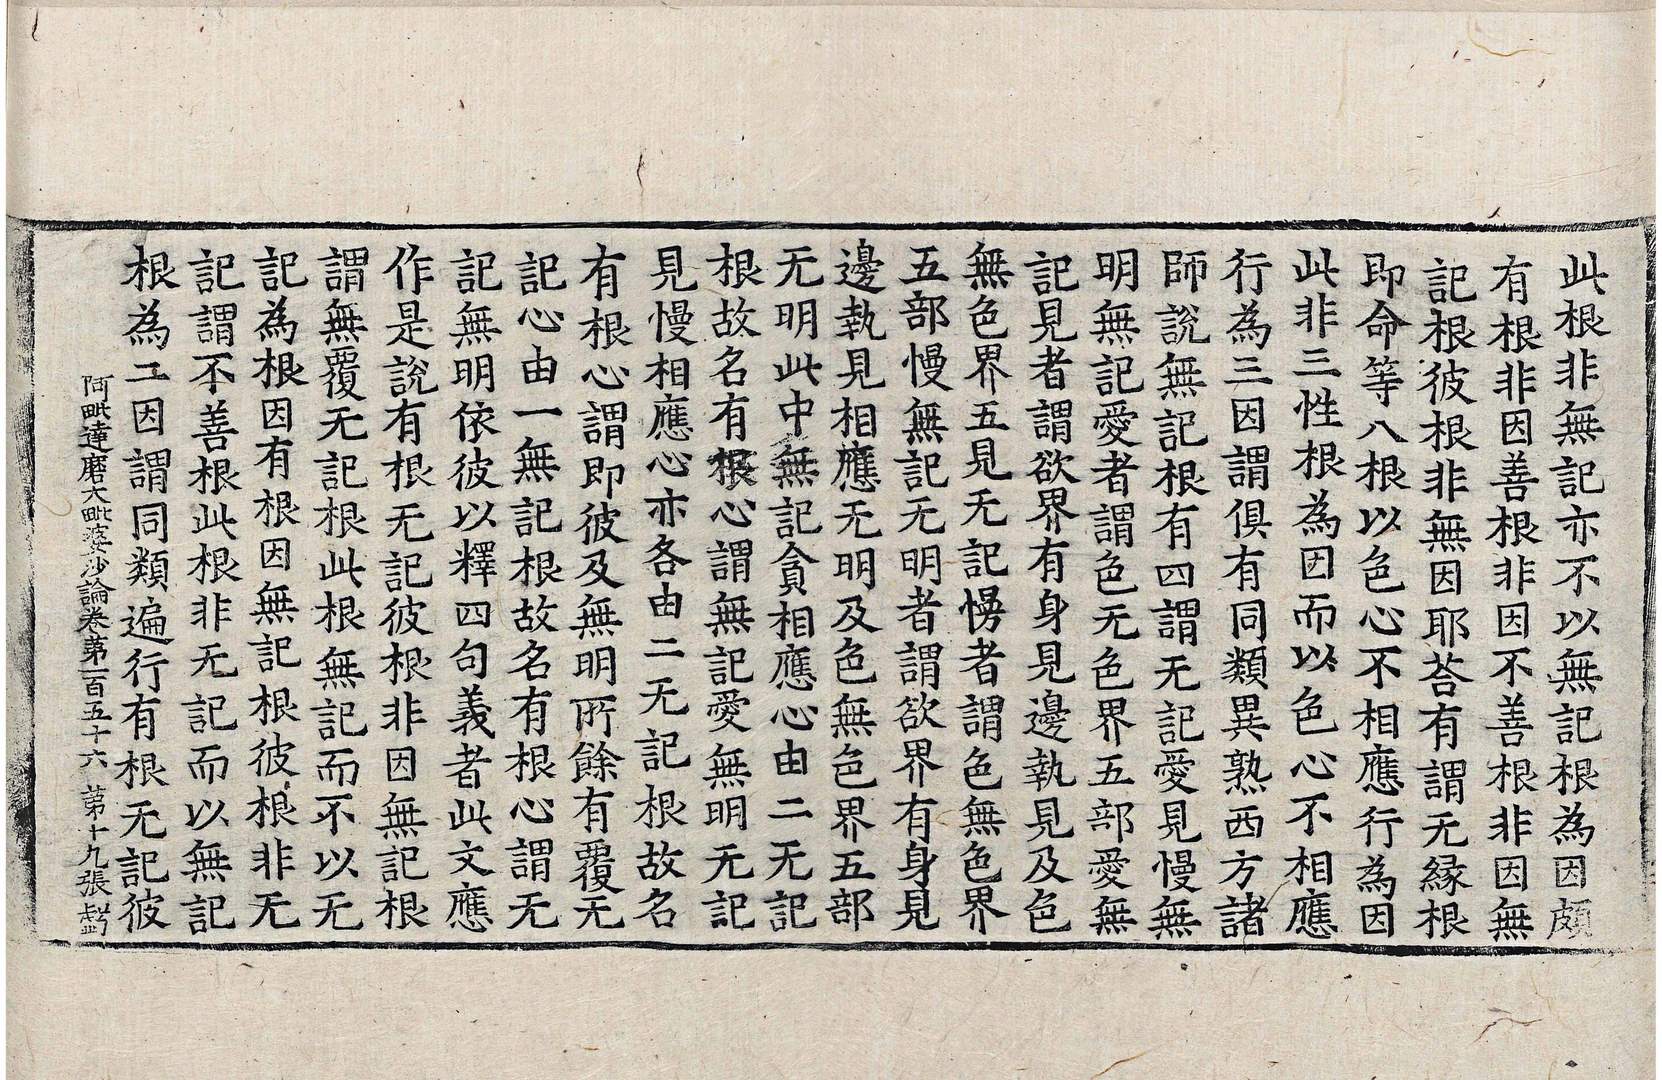 此根非無記亦不以無記根為因頗
有根非因善根非因不善根非因無
記根彼根非無因耶荅有謂无緣根
即命等八根以色心不相應行為因
此非三性根為因而以色心不相應
行為三因謂俱有同類異熟西方諸
師說無記根有四謂无記愛見慢無
明無記愛者謂色无色界五部愛無
記見者謂欲界有身見邊執見及色
無色界五見无記慢者謂色無色界
五部慢無記无明者謂欲界有身見
邊執見相應无明及色無色界五部
无明此中無記貪相應心由二无記
根故名有根心謂無記愛無明无記
見慢相應心亦各由二无記根故名
有根心謂即彼及無明所餘有覆无
記心由一無記根故名有根心謂无
記無明依彼以釋四句義者此文應
作是說有根无記彼根非因無記根
謂無覆无記根此根無記而不以无
記為根因有根因無記根彼根非无
記謂不善根此根非无記而以無記
根為二因謂同類遍行有根无記彼
阿毗達磨大毗婆沙論卷第一百五十六 第十九張